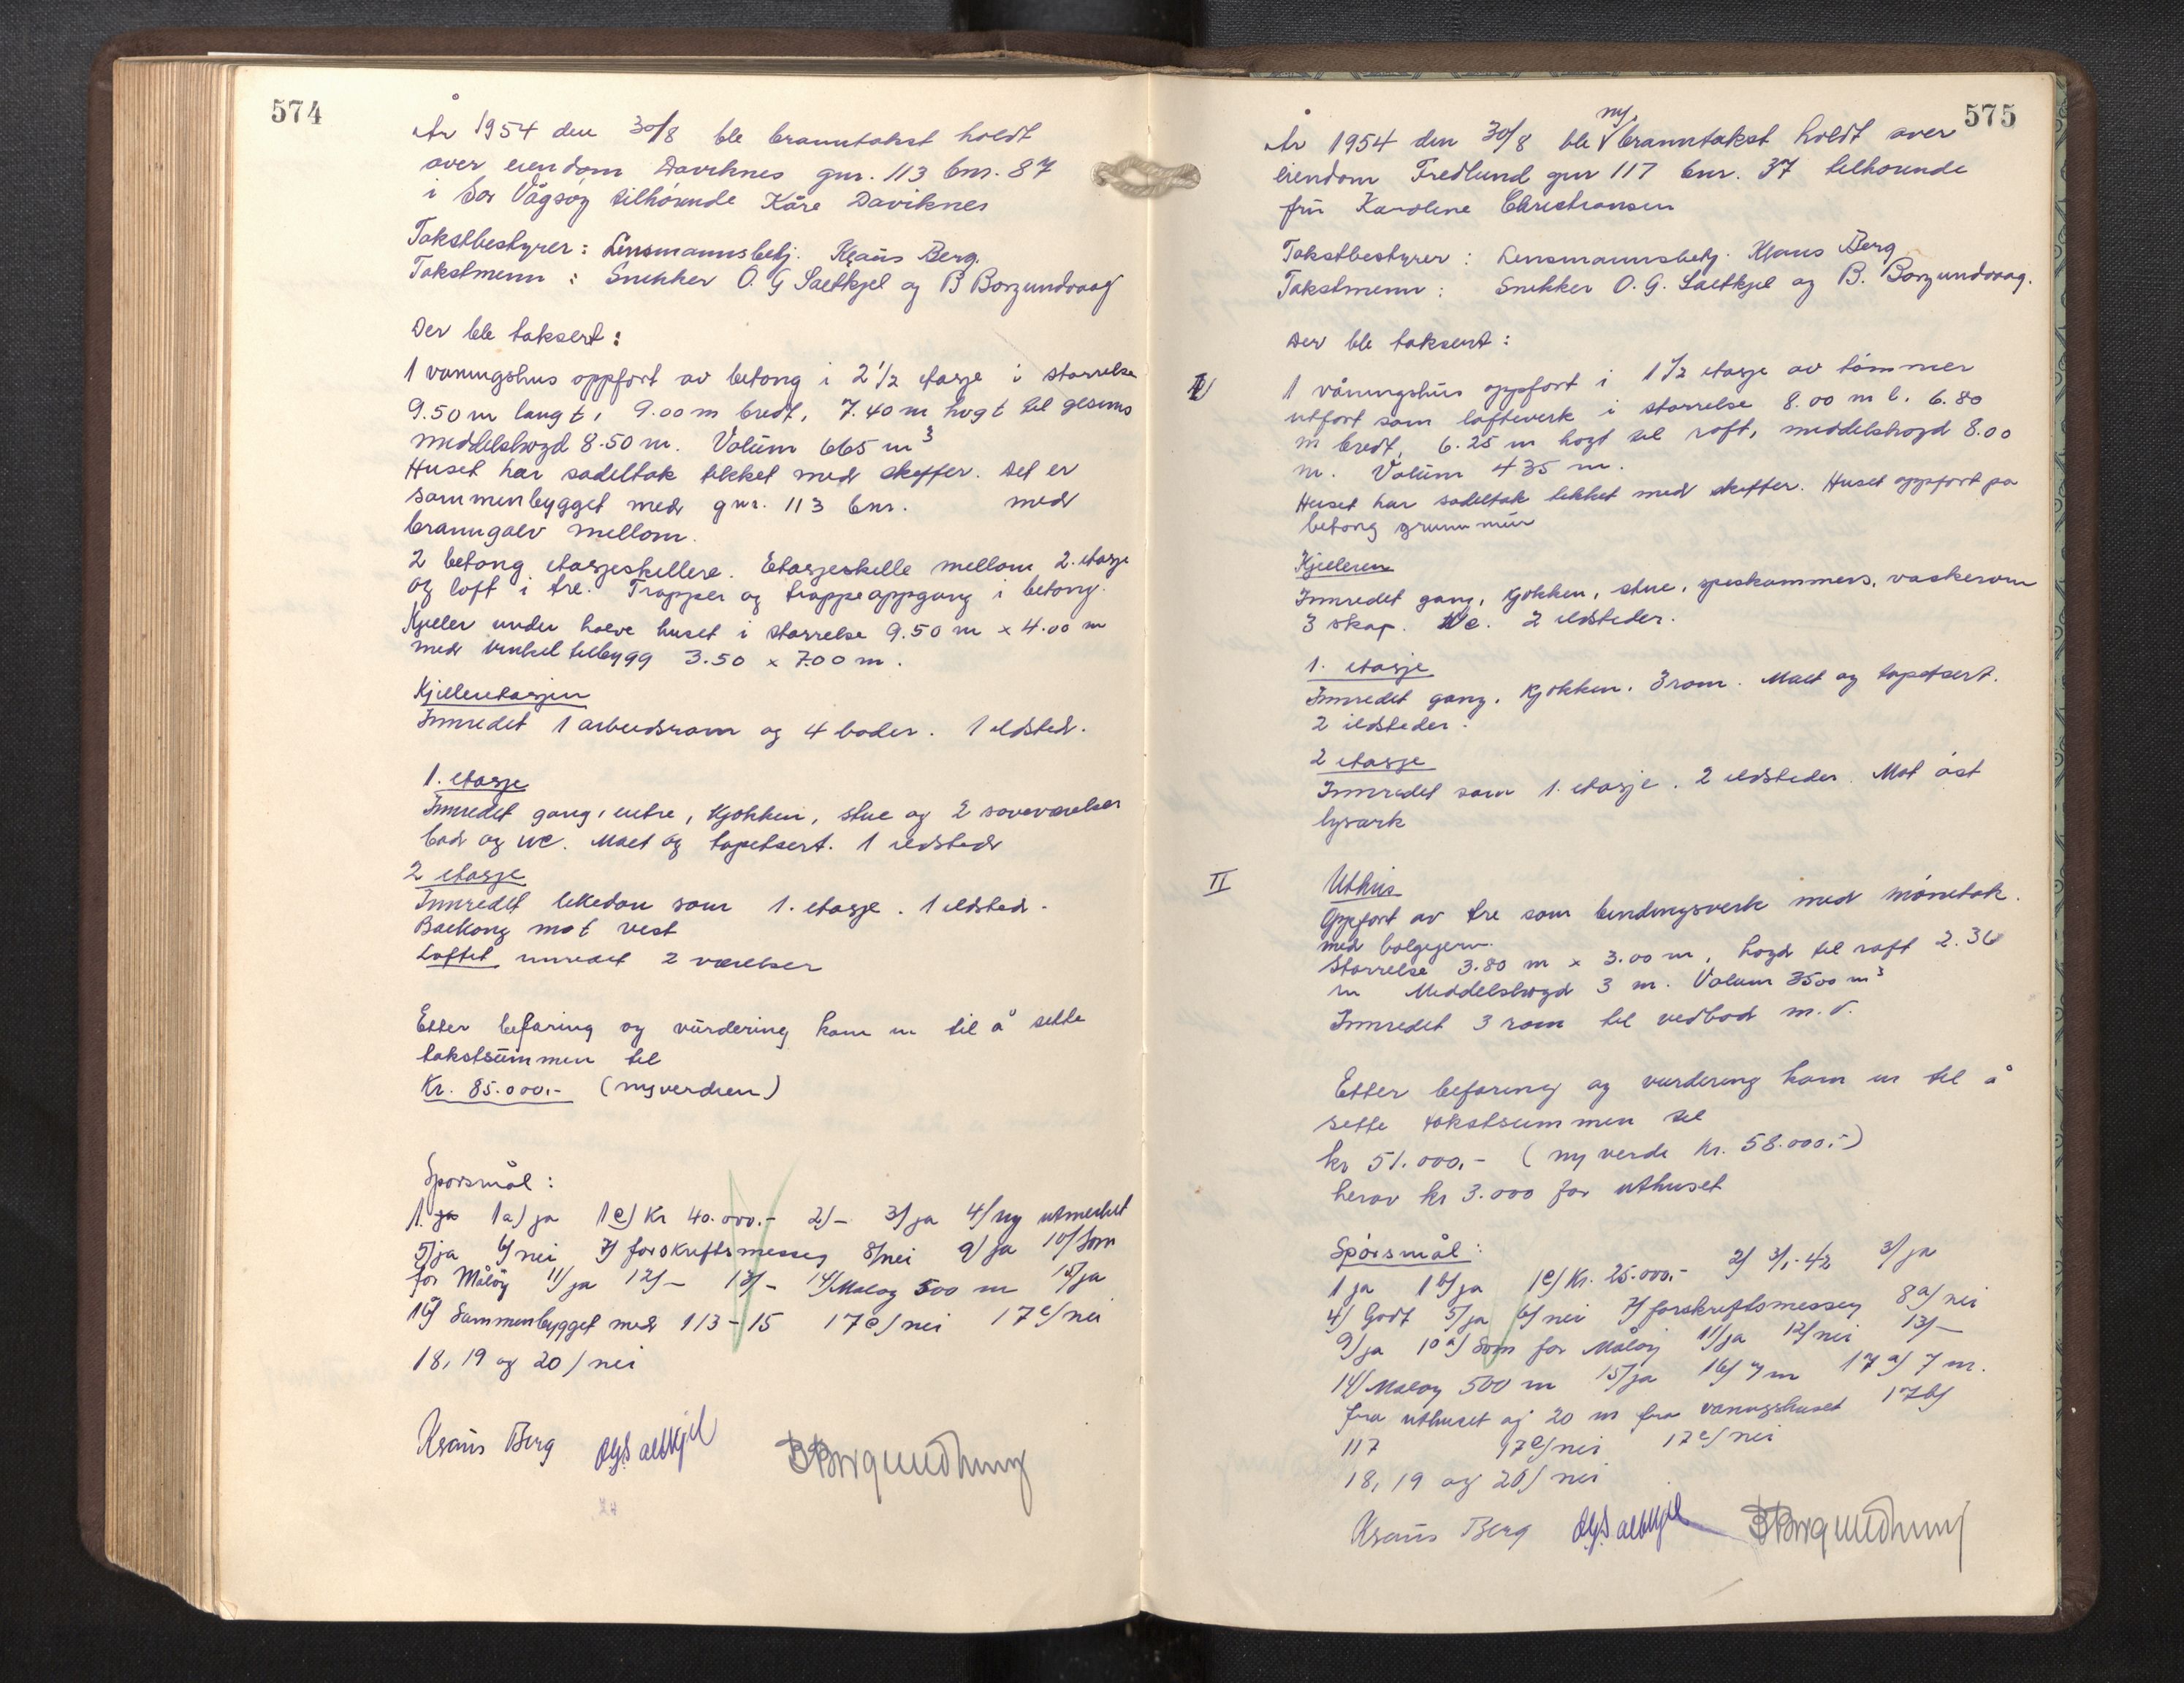 574
År 1954 den 30/8 ble branntakst holdt
over eiendom Daviknes gnr. 113 bnr. 87
i Sør Vågsøy tilhørende Kåre Daviknes
Takstbestyrer: Lensmannsbetj. Klaus Berg.
Takstmenn: Snekker O. G Saetkjel og B Borgundvaag
Der ble taksert:
1 vaningshus oppført av betong i 2 1/2 etasje i størrelse
9.50 m langt, 9.00 m bredt, 7.40 m høgt til gesims
middelshøgd 8.50 m. Volüm 665 m3
Huset har sadeltak tekket med skiffer. Det er
sammenbygget med gnr. 113 bnr. med
branngalv mellom.
2 betong etasjeskillere. Etasjeskille mellom 2. etasje
og loft i tre. Trapper og trappeoppgang i betong.
Kjeller under halve huset i størrelse 9.50 m x 4.00 m
med vinkel tilbygg 3.50 x 7.00 m.
Kjelleretasjen
Innredet 1 arbeidsrom og 4 boder. 1 ildsted.
1. etasje
Innredet gang, entre, kjøkken, stue og 2 soveværelser
bad og WC. Malt og tapetsert. 1 ildsted
2 etasje
Innredet likedan som 1. etasje. 1 ildsted.
Balkong mot vest
Loftet innredet 2 værelser
Etter befaring og vürdering kom en til å sette
takstsümmen til
Kr. 85.000.- (nyverdien)
Spørsmål:
1. ja 1a) ja 1c) Kr 40.000.- 2) - 3) ja 4) ny utmerket
5) ja 6) nei 7) forskriftsmessig 8) nei 9) ja 10) Som
for Måløy 11) ja 12) - 13) - 14) Maløy 500 m 15) ja
16) Sammenbygget med 113-15 17c) nei 17e) nei
18, 19 og 20) nei
Klaus Berg OGSaetkjel BBorgundvaag
575
År 1954 den 30/8 ble ny branntakst holdt over
eiendom Fredlund gnr 117 bnr. 37 tilhørende
frü Karoline Christiansen
Takstbestyrer: Lensmannsbetj. Klaus Berg
Takstmenn: Snekker O. G. Saetkjel og B. Borgundvaag.
Der ble taksert:
I) 1 våningshus oppført i 1 1/2 etasje av tømmer
utført som lafteverk i størrelse 8.00 m l. 6.80
m bredt, 6.25 m høgt til raft, middelshøgd 8.00
m. Volüm 435 m.
Huset har sadeltak tekket med skiffer. Huset oppført på
betong grunnmür
Kjelleren
Innredet gang, kjøkken, stue, speskammers, vaskerom
3 skap. Wc. 2 ildsteder.
1. etasje
Innredet gang, kjøkken. 3 rom. Malt og tapetsert.
2 ildsteder.
2 etasje
Innredet som 1. etasje. 2 ildsteder. Mot øst
lysark
II Uthus
Oppført av tre som bindingsverk med mønetak.
med bølgejern.
Størrelse 3.80 m x 3.00 m, høgd til raft 2.30
m Middelshøgd 3 m. Volum 3500 m3
Innredet 3 rom til vedbod m.v.
Etter befaring og vurdering kom en til å
sette takstsummen til
kr 51.000,- (ny verdi kr. 58.000.-)
herav kr 3.000 for uthuset
Spørsmål:
1 ja 1b) ja 1c) Kr. 25.000.- 2) 3/1-42 3) ja
4) Godt 5) ja 6) nei 7) forskriftsmessig 8a) nei
9) ja 10a) Som for Måløy 11) ja 12) nei 13) -
14) Maløy 500 m 15) ja 16) 7 m 17a) 7 m.
fra uthuset og 20 m fra vaningshuset 17b)
117 17c) nei 17e) nei
18, 19 og 20) nei
Klaus Berg OGSaetkjel BBorgundvaag